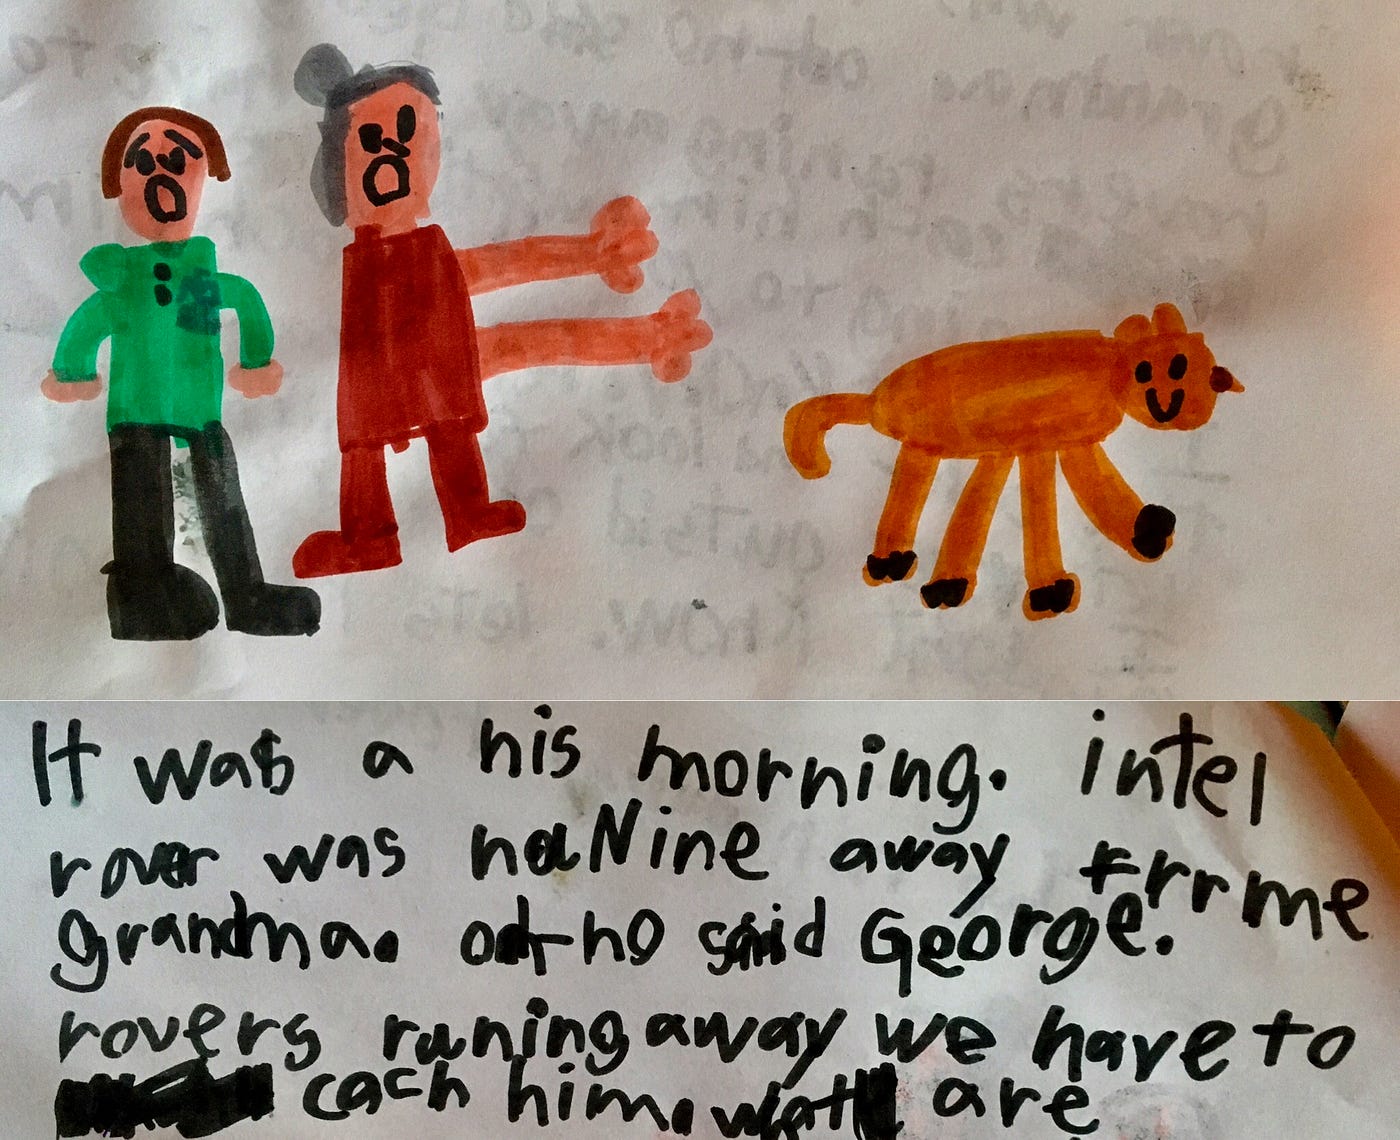 It was a his morning. intel
rover was haNine away frrme
grandma. oh-no said George.
rovers runing away we have to
cach him. wat are